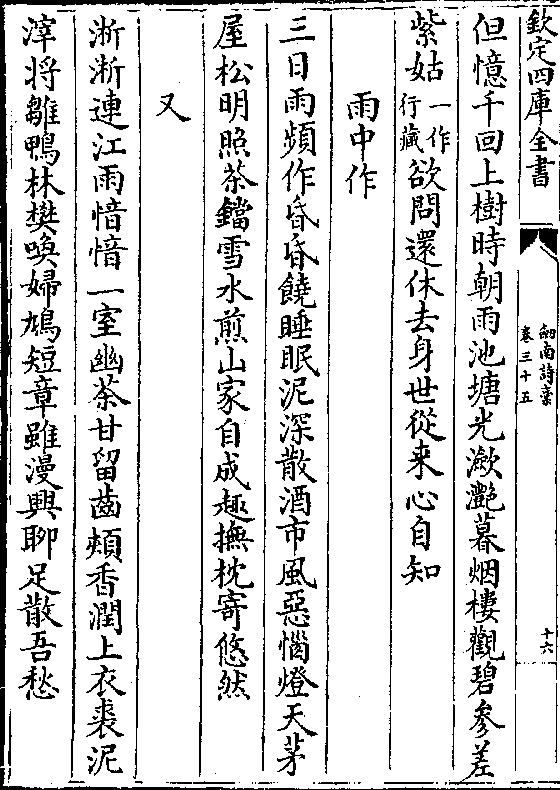 欽定四庫全書
劍南詩藁
卷三十五
十六
但憶千回上樹時朝雨池塘光瀲灧暮烟樓觀碧參差
紫姑一作行藏欲問還休去身世從来心自知
雨中作
三日雨頻作昏昏饒睡眠泥深散酒市風惡惱燈天茅
屋松明照茶鐺雪水煎山家自成趣撫枕寄悠然
又
淅淅連江雨愔愔一室幽茶甘留齒頰香潤上衣裘泥
滓将雛鴨林樊喚婦鳩短章雖漫興聊足散吾愁